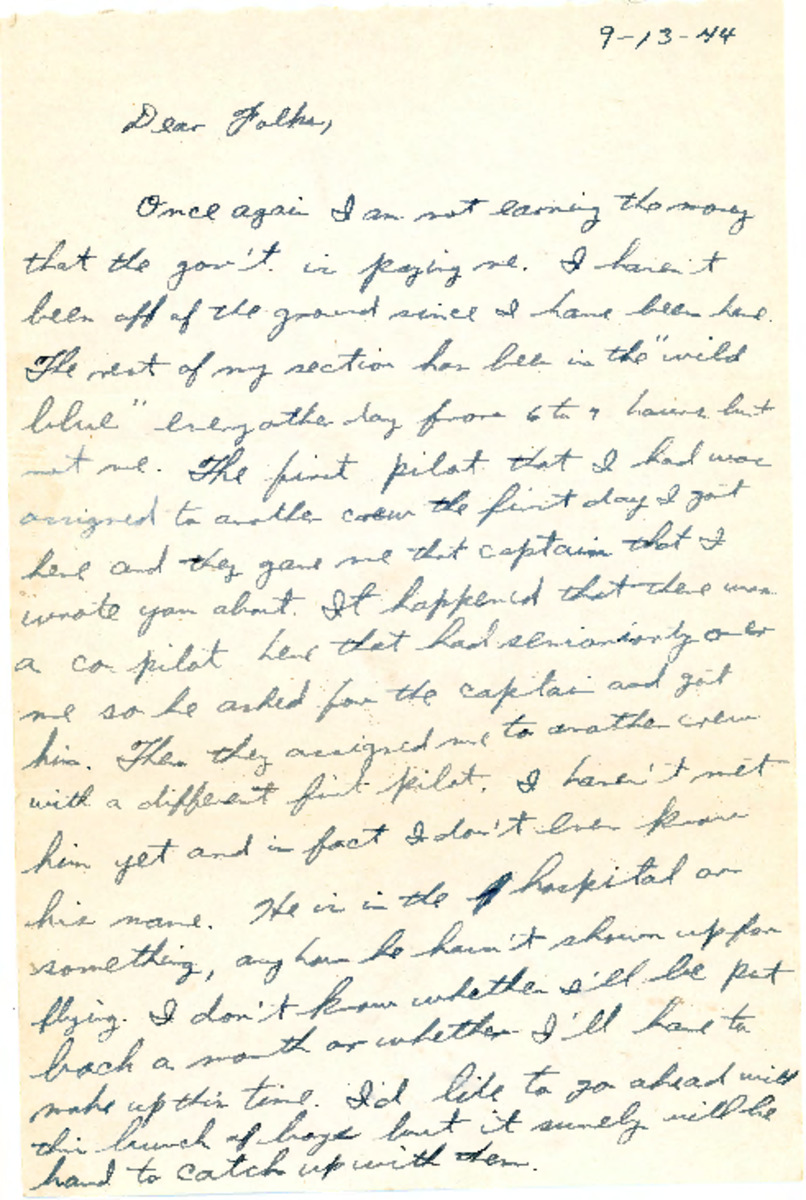 9-13-44
Dear Folks,
Once again I am not earning the money
that the gov't. is paying me. I haven't
been off of the ground since I have been here.
The rest of my section has been in the "wild
blue" every other day from 6 to 9 hours but
not me. The first pilot that I had was
assigned to another crew the first day I got
here and they gave me that captain that I
wrote you about. It happened that there was
a co pilot here that had seniority over
me so he asked for the captain and got
him. Then they assigned me to another crew
with a different first pilot. I haven't met
him yet and in fact I don't even know
his name. He is in the hospital or
something, anyhow he hasn't shown up for
flying. I don't know whether I'll be put
back a month or whether I'll have to
make up this time. I'd like to go ahead with
this bunch of boys but it surely will be
hard to catch up with them.